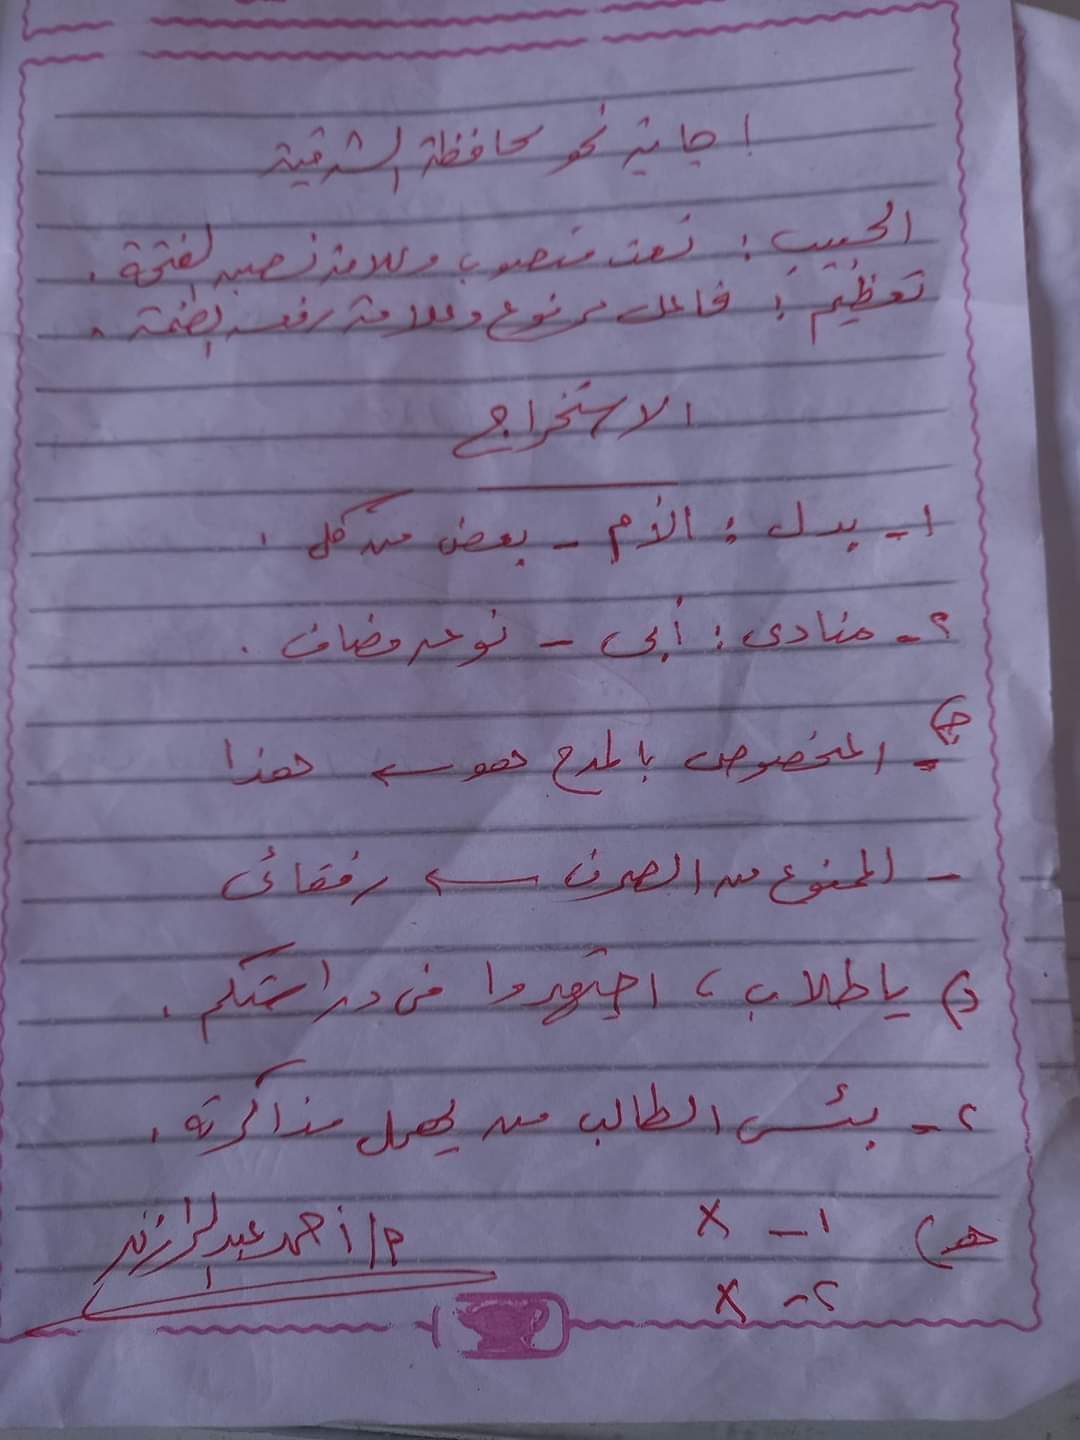 إجابة نحو محافظة الشرقية
الحبيب : نعت منصوب وعلامة نصبه الفتحة .
تعظيم : فاعل مرفوع وعلامة رفعه الضمة .
الاستخراج
١ - بدل : الأم - بعض من كل .
٢ - منادى : أبى - نوعه مضاف .
ج) - المخصوص بالمدح هو ← هذا
- الممنوع من الصرف ← رفقائى
د) يا طلاب ، اجتهدوا فى دراستكم .
٢ - بئس الطالب من يهمل مذاكرته .
هـ) ١ - x
م/ أحمد عبد الرازق
٢ - x